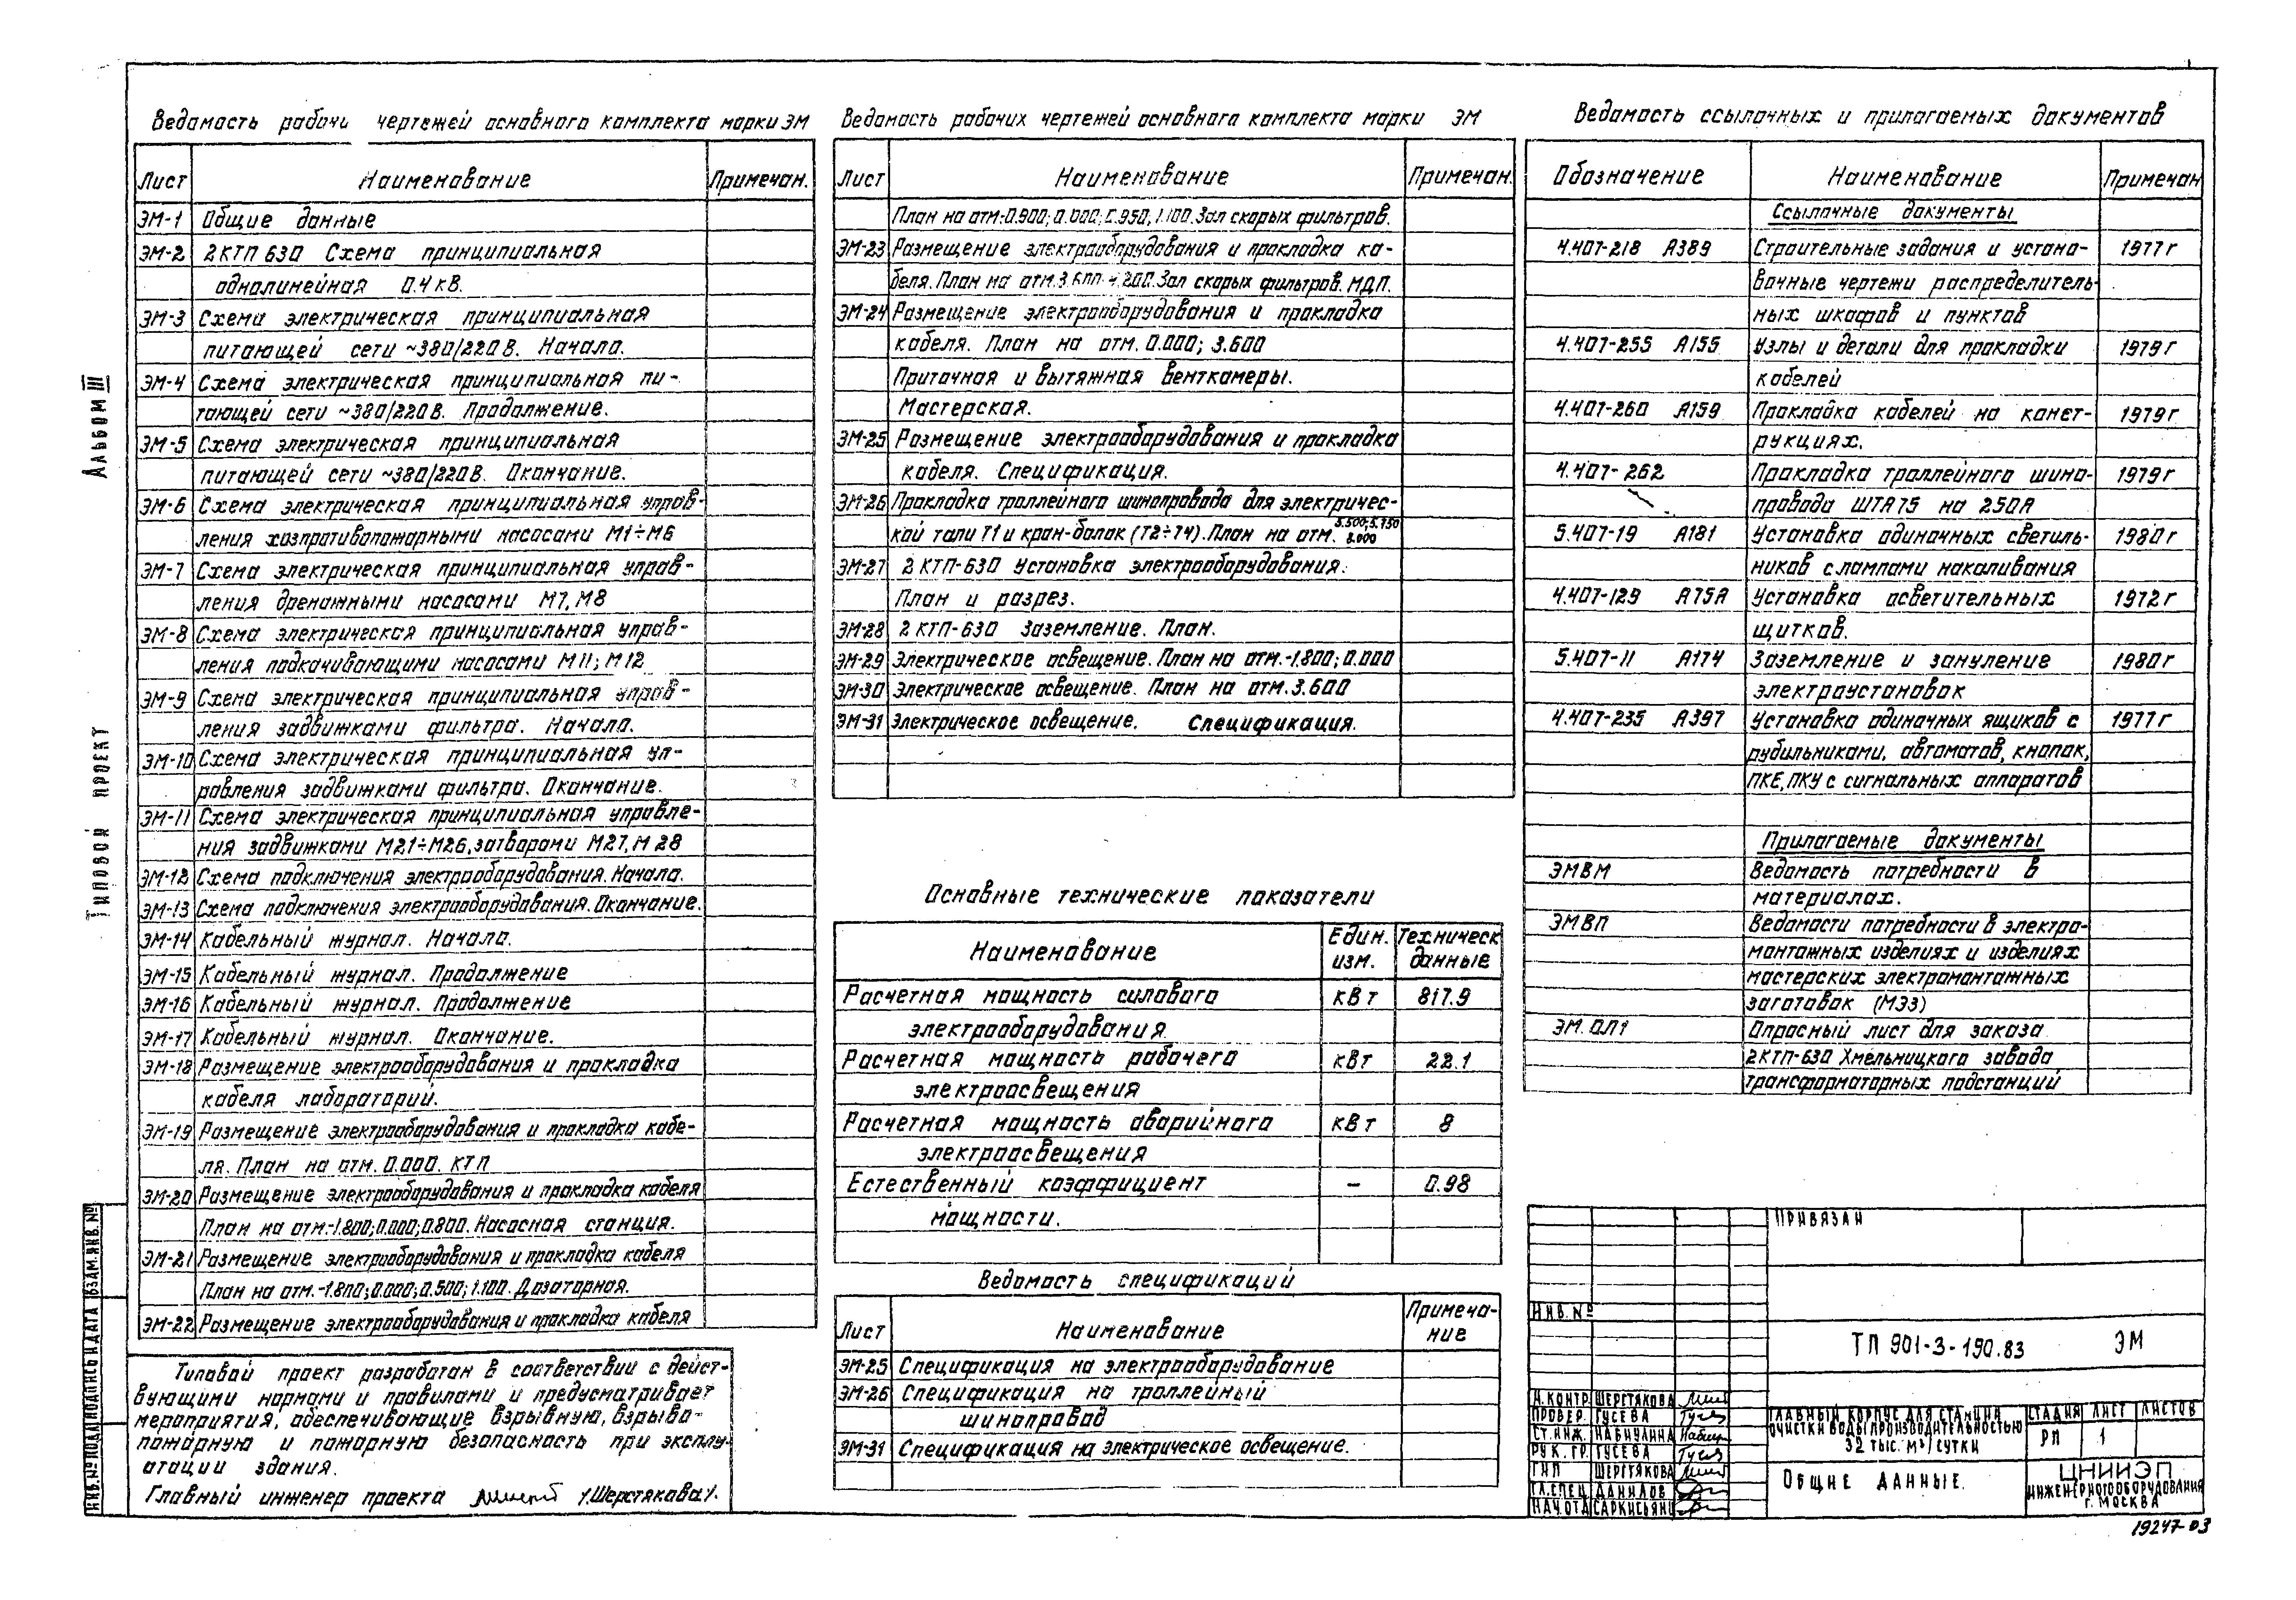 Альбом III
Типовой проект
Ведомость рабочи чертежей основного комплекта марки ЭМ
Лист Наименование Примечан.
ЭМ-1 Общие данные
ЭМ-2 2КТП 630 Схема принципиальная
однолинейная 0.4 кВ.
ЭМ-3 Схема электрическая принципиальная
питающей сети ~380/220 В. Начало.
ЭМ-4 Схема электрическая принципиальная пи-
тающей сети ~380/220 В. Продолжение.
ЭМ-5 Схема электрическая принципиальная
питающей сети ~380/220 В. Окончание.
ЭМ-6 Схема электрическая принципиальная управ-
ления хозпротивопожарными насосами М1÷М6
ЭМ-7 Схема электрическая принципиальная управ-
ления дренажными насосами М7, М8
ЭМ-8 Схема электрическая принципиальная управ-
ления подкачивающими насосами М11; М12
ЭМ-9 Схема электрическая принципиальная управ-
ления задвижками фильтра. Начало.
ЭМ-10 Схема электрическая принципиальная уп-
равления задвижками фильтра. Окончание.
ЭМ-11 Схема электрическая принципиальная управле-
ния задвижками М21÷М26, затворами М27, М28
ЭМ-12 Схема подключения электрооборудования. Начало.
ЭМ-13 Схема подключения электрооборудования. Окончание.
ЭМ-14 Кабельный журнал. Начало.
ЭМ-15 Кабельный журнал. Продолжение
ЭМ-16 Кабельный журнал. Продолжение
ЭМ-17 Кабельный журнал. Окончание.
ЭМ-18 Размещение электрооборудования и прокладка
кабеля лабораторий.
ЭМ-19 Размещение электрооборудования и прокладка кабе-
ля. План на отм. 0.000. КТП
ЭМ-20 Размещение электрооборудования и прокладка кабеля
План на отм.-1.800; 0.000; 0.800. Насосная станция.
ЭМ-21 Размещение электрооборудования и прокладка кабеля
План на отм.-1.800; 0.000; 0.500; 1.100. Дозаторная.
ЭМ-22 Размещение электрооборудования и прокладка кабеля
Типовой проект разработан в соответствии с дейст-
вующими нормами и правилами и предусматривает
мероприятия, обеспечивающие взрывную, взрыво-
пожарную и пожарную безопасность при эксплу-
атации здания.
Главный инженер проекта /.Шерстякова/.
Ведомость рабочих чертежей основного комплекта марки ЭМ
Лист Наименование Примечан.
План на отм-0.900; 0.000; 0.950; 1.100. Зал скорых фильтров.
ЭМ-23 Размещение электрооборудования и прокладка ка-
беля. План на отм. 3.600 4.200. Зал скорых фильтров. МДП.
ЭМ-24 Размещение электрооборудования и прокладка
кабеля. План на отм. 0.000; 3.600
Приточная и вытяжная венткамеры.
Мастерская.
ЭМ-25 Размещение электрооборудования и прокладка
кабеля. Спецификация.
ЭМ-26 Прокладка троллейного шинопровода для электричес-
кой тали Т1 и кран-балок (Т2÷Т4). План на отм. 8.000
ЭМ-27 2 КТП-630 Установка электрооборудования.
План и разрез.
ЭМ-28 2 КТП-630 Заземление. План.
ЭМ-29 Электрическое освещение. План на отм.-1.800; 0.000
ЭМ-30 Электрическое освещение. План на отм. 3.600
ЭМ-31 Электрическое освещение. Спецификация.
Основные технические показатели
Наименование Един. изм. Техническ данные
Расчетная мощность силового кВт 817.9
электрооборудования.
Расчетная мощность рабочего кВт 22.1
электроосвещения
Расчетная мощность аварийного кВт 8
электроосвещения
Естественный коэффициент – 0.98
мощности.
Ведомость спецификаций
Лист Наименование Примеча-
ние
ЭМ-25 Спецификация на электрооборудование
ЭМ-26 Спецификация на троллейный
шинопровод
ЭМ-31 Спецификация на электрическое освещение.
Ведомость ссылочных и прилагаемых документов
Обозначение Наименование Примечан
Ссылочные документы
4.407-218 А389 Строительные задания и устано- 1977 г
вочные чертежи распределитель-
ных шкафов и пунктов
4.407-255 А155 Узлы и детали для прокладки 1979 г
кабелей
4.407-260 А159 Прокладка кабелей на конст- 1979 г
рукциях.
4.407-262 Прокладка троллейного шино- 1979 г
провода ШТА75 на 250А
5.407-19 А181 Установка одиночных светиль- 1980 г
ников с лампами накаливания
4.407-129 А75А Установка осветительных 1972 г
щитков.
5.407-11 А174 Заземление и зануление 1980 г
электроустановок
4.407-235 А397 Установка одиночных ящиков с 1977 г
рубильниками, автоматов, кнопок,
ПКЕ, ПКУ с сигнальных аппаратов
Прилагаемые документы
ЭМВМ Ведомость потребности в
материалах.
ЭМВП Ведомости потребности в электро-
монтажных изделиях и изделиях
мастерских электромонтажных
заготовок (МЭЗ)
ЭМ.ОЛ1 Опросный лист для заказа
2КТП-630 Хмельницкого завода
трансформаторных подстанций
Привязан
Инв. №
ТП 901-3-190.83 ЭМ
Н.контр. Шерстякова
Провер. Гусева
Ст.инж. Набиулина
Рук. гр. Гусева
ГИП Шерстякова
Гл.спец Данилов
Нач.отд Саркисьян
Главный корпус для станции
очистки воды производительностью
32 тыс. м³/сутки
Стадия Лист Листов
РП 1
Общие данные.
ЦНИИЭП
инженерного оборудования
г. Москва
19247-03
Взам.инв. №
Подпись и дата
Инв. № подл.